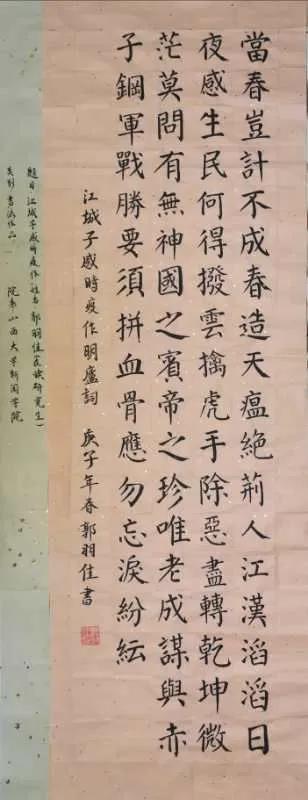 當春豈計不成春造天瘟絕荊人江漢滔滔日
夜感生民何得撥雲擒虎手除惡盡轉乾坤微
茫莫問有無神國之賓帝之珍唯老成謀與赤
子鋼軍戰勝要須拼血骨應勿忘淚紛紜
江城子感時疫作明廬詞 庚子年春郭羽佳書
題目 江城子感时疫作 姓名 郭羽佳 研究生)
类别 書法作品 院系 山西大学新闻学院